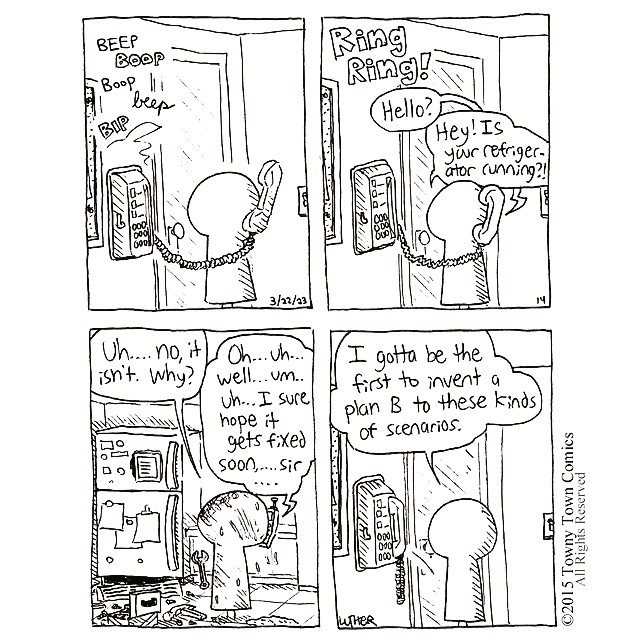 BEEP
BOOP
Boop
beep
BIP
3/22/23
Ring
Ring!
Hello?
Hey! Is
your refriger-
ator running?!
14
Uh.... no, it
isn't. Why?
Oh...uh...
well...um..
uh...I sure
hope it
gets fixed
soon,....sir
....
I gotta be the
first to invent a
plan B to these kinds
of scenarios.
LUTHER
©2015 Towny Town Comics
All Rights Reserved